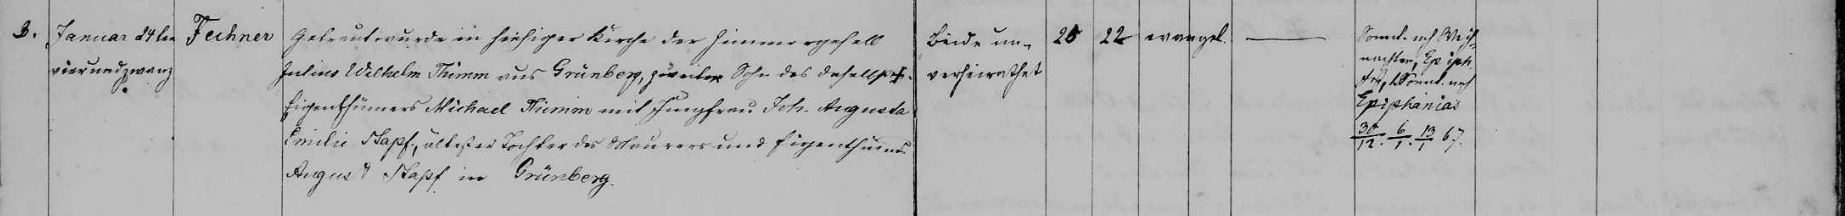 3.
Januar 24ten
vierundzwanz
Fechner
Getraut wurde in hiesiger Kirche der Zimmergesell
Julius Wilhelm Thimm aus Grünberg, zweiter Sohn des daselbst.
Eigenthümers Michael Thimm mit Jungfrau Joh. Augusta
Emilie Stapf, ältester Tochter des Maurers und Eigenthümers
August Stapf in Grünberg.
Beide un-
verheirathet
25
22
evangel.
Sonnt. nach Weih-
nachten, Epiph.
Sonnt. nach
Epiphanias
30/12. 6/1. 13/1 67.